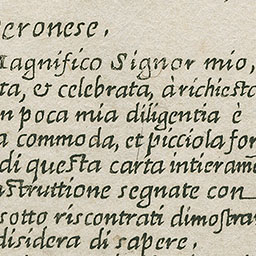 eronese.
Magnifico Signor mio,
ta, & celebrata, à richiesta
n poca mia diligentia è
a commoda, et picciola for
di questa carta intieram
struttione segnate con
sotto riscontrati dimostra
disidera di sapere.